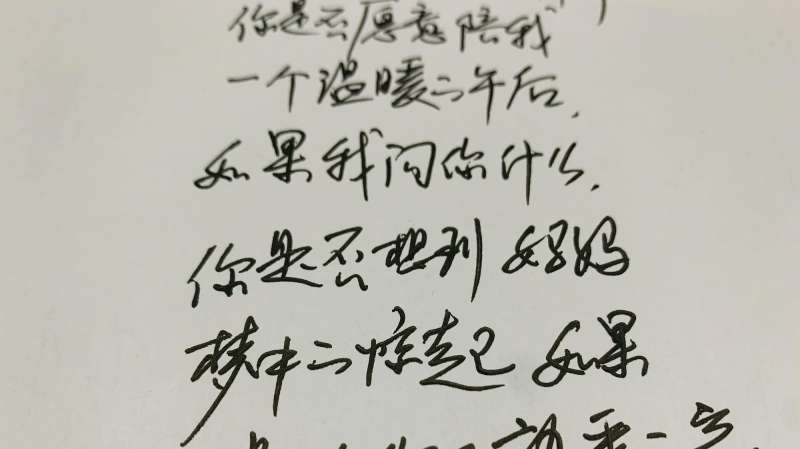 你是否愿意陪我
一个温暖的午后，
如果我问你什么，
你是否想到妈妈
梦中的惊起 如果